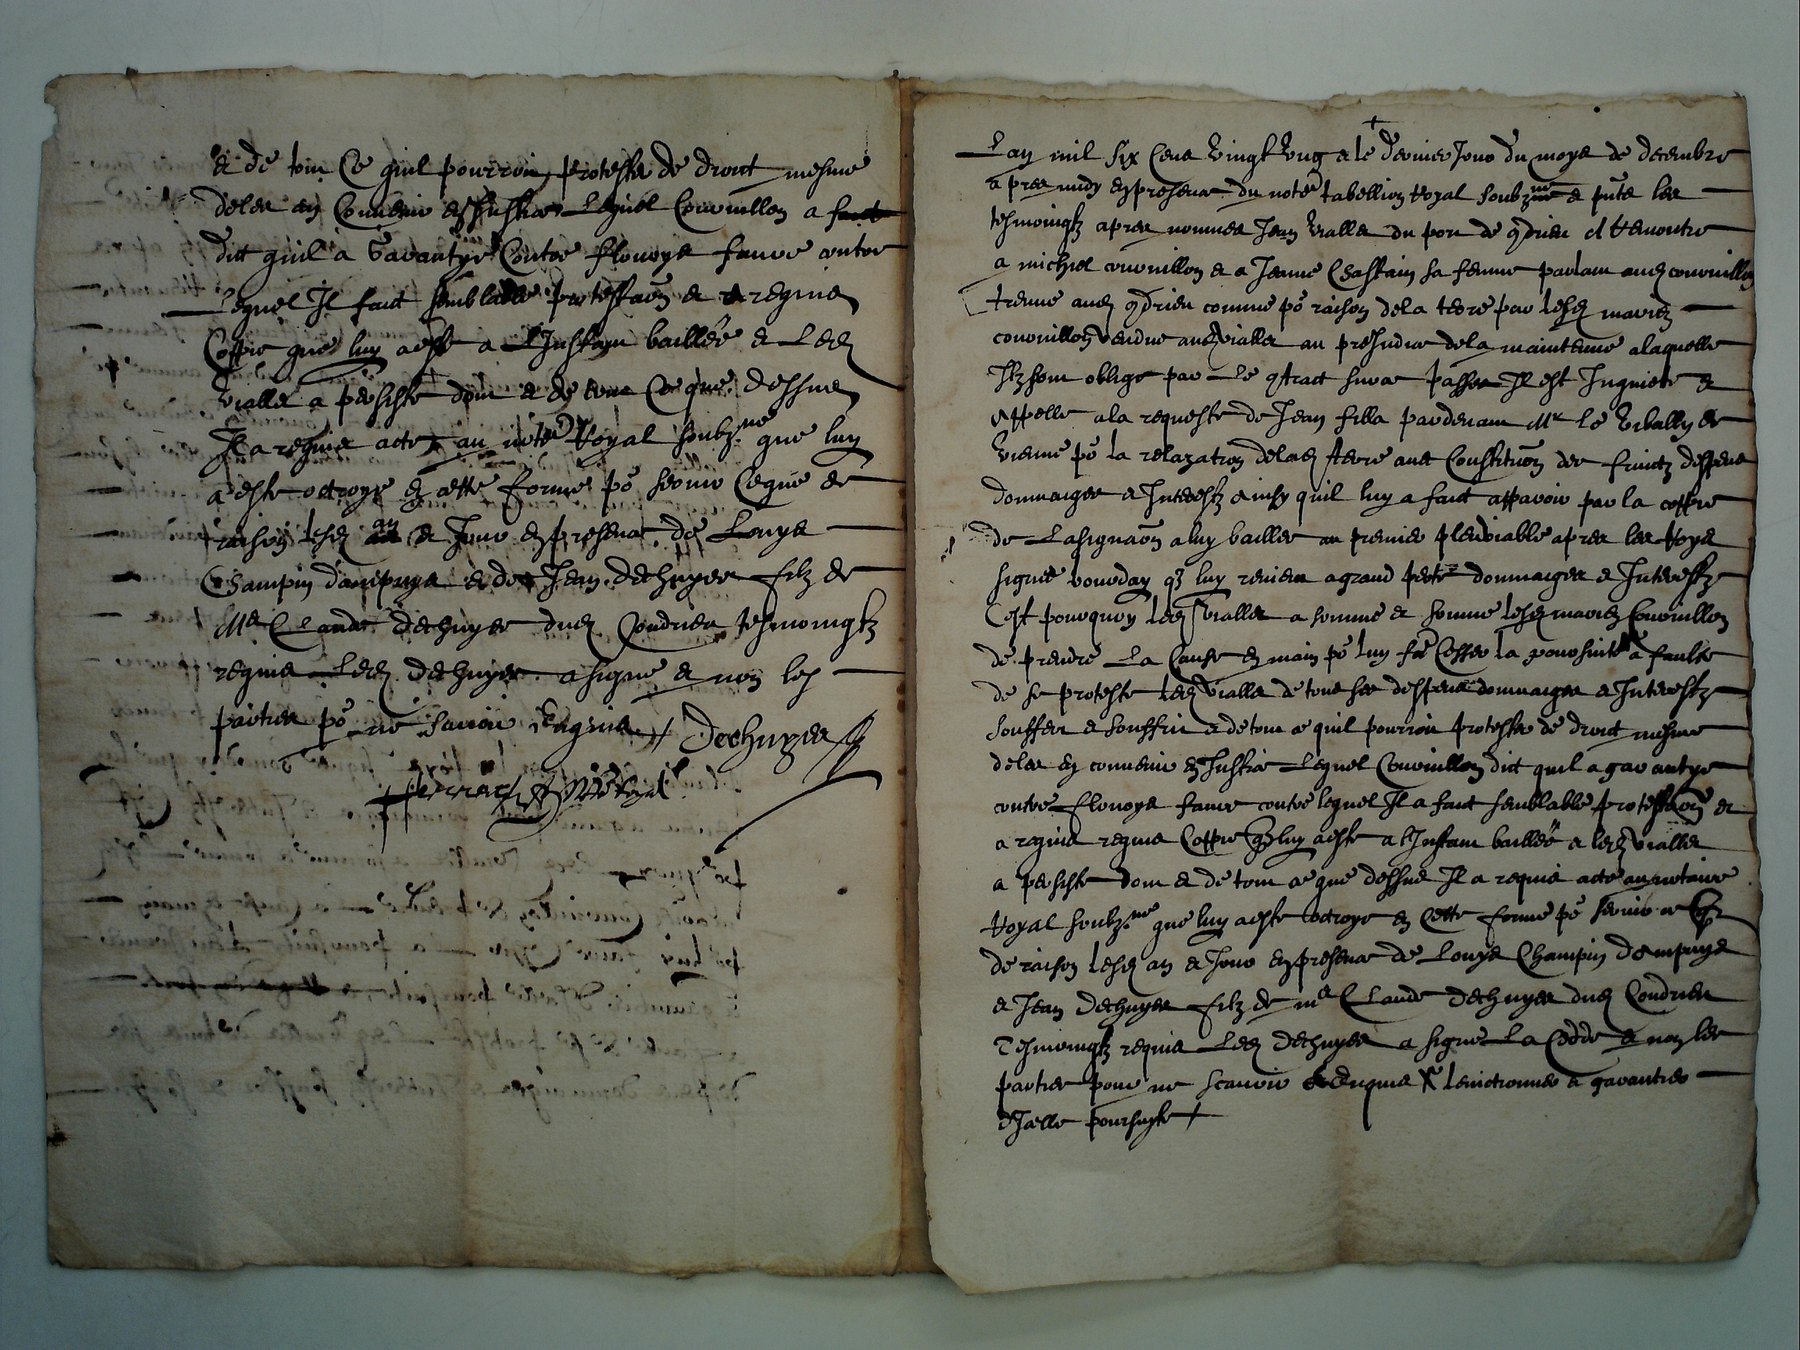 & de tout ce quil pourroit proteste de droict mesme
deler en Convenir en Justice Lequel Covouillon a faict
dict quil a Garantye Contre flourys faure contre
Lequel Il faict semblable protestaon & a requis
Coppie que luy a este a L'Instam baillée & Led
Vialler a persiste dont & de tout Ce que dessus
Il a requis acte au notere Royal soubz.ne que luy
a este octroye en cette forme po servir ce que de
raison lesd an & Jour en presence de Louys
Champin danpuys & de Jean dechuyer filz de
Me Claude dechuyer dud Condrieu tesmoingtz
requis Led dechuyer a signe & non les
parties po ne scavoir Enquis + Dechuyer
Lan mil six Cens vingt ung & le dernier Jour du moys de decembre
apres midy en presence du notere tabellion Royal soubz.ne & pnte les
tesmoingtz apres nommes Jean Vialler du port de qdrieu A Remontre
a michiel covouillon & a Jeanne Chastain sa femme parlant aud covouillon
treuve aud qdrieu comme po raison dela terre par lesd maries
covouillon vendue aud Vialler au presjudice dela maintenue alaquelle
Ilz sont oblige par Le qtract sur ce passer Il est Inquiete &
Appelle ala requeste de Jean filla pardevant Mr Le Vibally de
Vienne po la relaxation delad terre avec Constituon des fruictz despens
dommaiges & Interestz ainsy quil luy a faict apparoir par la coppie
de Lasignaon a luy bailler au premier pledoiable apres les Roys
signé bourday qz luy revient a grand perte dommaiges & Interestz
Cest pourquoy Led Vialler a somme & somme lesd maries Covouillon
de prendre La Cause en main po luy fe Cesser la poursuite & a faulte
de ce proteste led Vialler de tous ses despens dommaiges & Interestz
souffers & souffrir & de tout ce quil pourroit proteste de droict mesme
deler en convenir en Justice Lequel Covouillon dict quil a garantye
contre flourys faure contre lequel Il a faict semblable protestaon &
a requis requis Coppie que luy a este a l'Instam baillée & led Vialler
a persiste dont & de tout ce que dessus Il a requis acte au notaire
Royal soubz.ne que luy a este octroye en Cette forme po servir ce que
de raison lesd an & Jour en presence de Louys Champin danpuys
& Jean dechuyer filz de me Claude dechuyer dud Condrieu
Tesmoingtz requis Led dechuyer a signe La Cedde & non les
parties pour ne scavoir Enquis X levictionner & garantir
d'Icelle poursuyte +